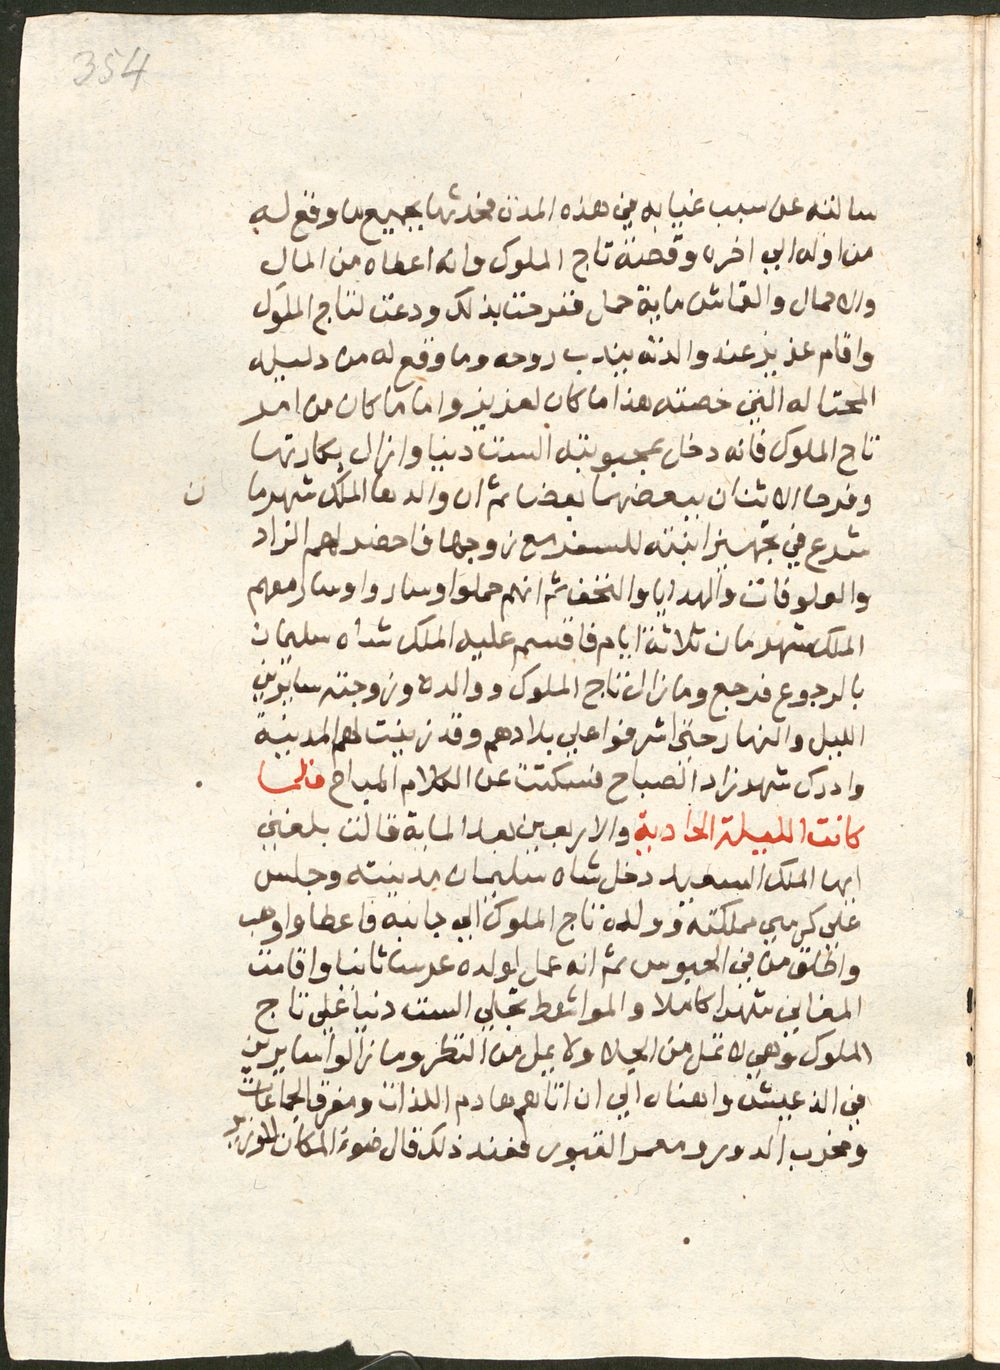 354
سالته عن سبب غيابه في هذه المدن فحدثها بجميع ما وقع له
من اوله الي اخره وقصة تاج الملوك وانه اعطاه من المال
والاحمال والقماش ماية حمل ففرحت بذلك ودعت لتاج الملوك
واقام عزيز عند والدته يندب روحه وما وقع له من دليله
المحتاله التي خصته هذا ما كان لعزيز واما ما كان من امر
تاج الملوك فانه دخل بمحبوبته الست دنيا وازال بكارتها
وفرحا الاثنان ببعضهما بعضا ثم ان والدها الملك شهرما
ن
شرع في تجهيز ابنته للسفر مع زوجها فاحضر لهم الزاد
والعلوفات والهدايا والتحف ثم انهم حملوا وساروا وسار معهم
الملك شهرمان ثلاثة ايام فاقسم عليه الملك شاه سليمان
بالرجوع فرجع وما زال تاج الملوك ووالده وزوجته سايرين
الليل والنهار حتى اشرفوا علي بلادهم وقد زينت لهم المدينة
وادرك شهرزاد الصباح فسكتت عن الكلام المباح فلما
كانت الليلة الحادية والاربعين بعد الماية قالت بلغني
ايها الملك السعيد دخل شاه سليمان مدينته وجلس
على كرسي مملكته وولده تاج الملوك الي جانبه فاعطا واوهب
واطلق من في الحبوس ثم انه عمل لولده عرسا ثانيا واقامت
المغاني شهرا كاملا والمواشط تجلي الست دنيا علي تاج
الملوك وهي لا تمل من الجلا ولا يمل من النظر وما زالوا سايرين
في الذ عيش واهناه الي ان اتاهم هادم اللذات ومفرق الجماعات
ومخرب الدور ومعمر القبور فعند ذلك قال ضوء المكان للوزير